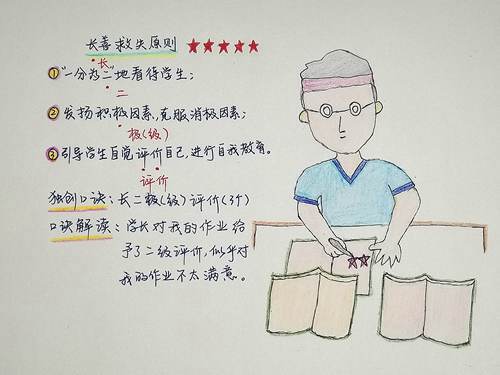 长善救失原则 ★★★★★
·长
①"一分为二"地看待学生；
二
②发扬积极因素，克服消极因素；
极(级)
③引导学生自觉评价自己，进行自我教育。
评价
独创口诀：长二极(级)评价(3个)
口诀解读：学长对我的作业给
予了二级评价，似乎对
我的作业不太满意。